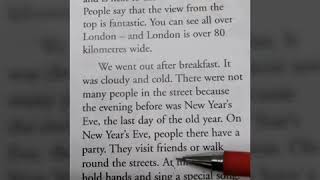 People say that the view from the
top is fantastic. You can see all over
London – and London is over 80
kilometres wide.
We went out after breakfast. It
was cloudy and cold. There were not
many people in the street because
the evening before was New Year's
Eve, the last day of the old year. On
New Year's Eve, people there have a
party. They visit friends or walk
round the streets. At
hold hands and sing a special song